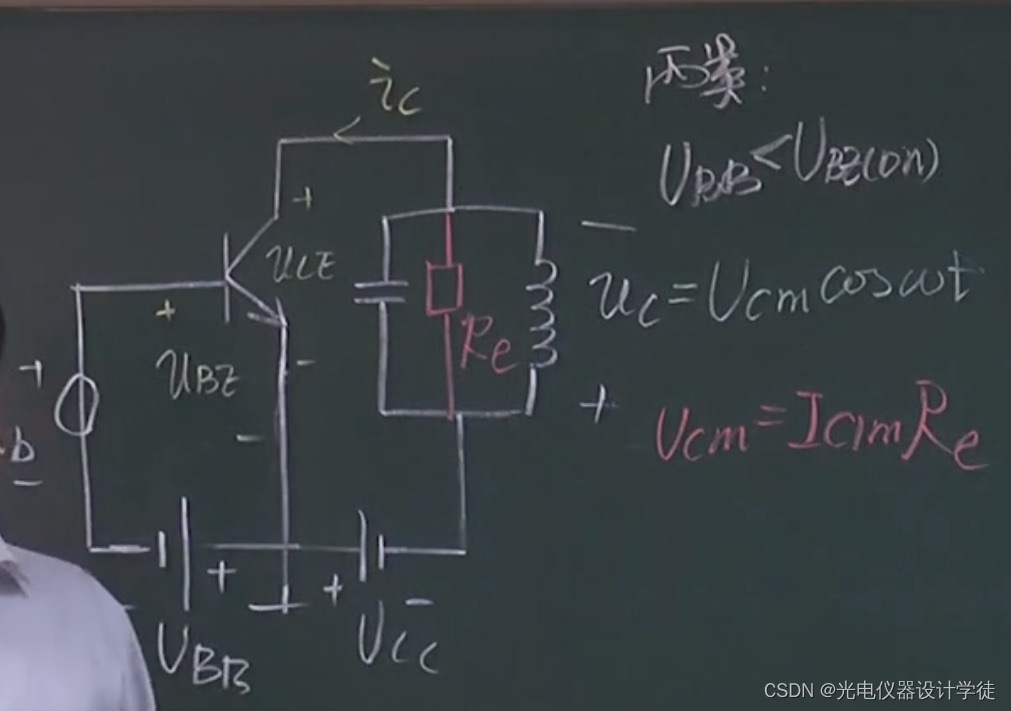 丙类:
ic
UBB<UBE(on)
+
uCE
-
uc=Ucm cosωt
+
+
uBE
-
Re
+
Ucm=Ic1mRe
+
b
-
+
+
-
UBB
UCC
CSDN @光电仪器设计学徒